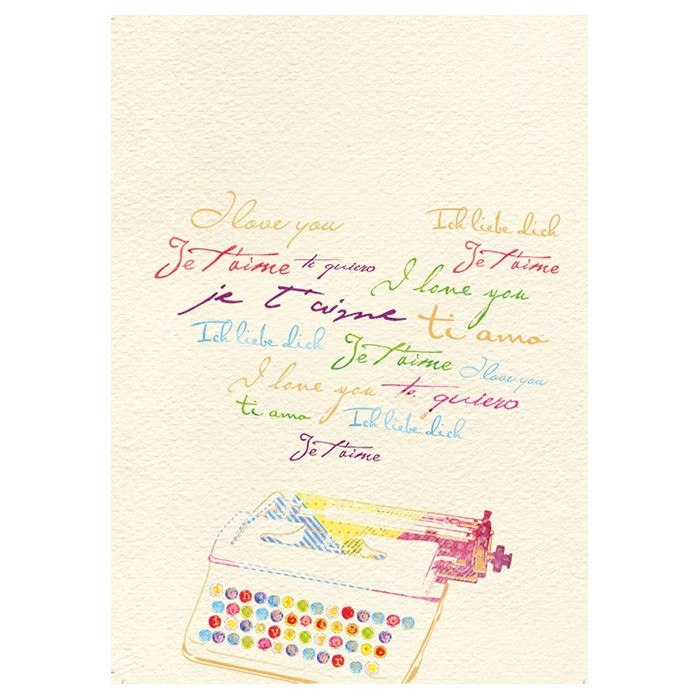 I love you Ich liebe dich
Je t'aime te quiero Je t'aime
I love you
je t'aime ti amo
Ich liebe dich Je t'aime I love you
I love you te quiero
ti amo Ich liebe dich
Je t'aime